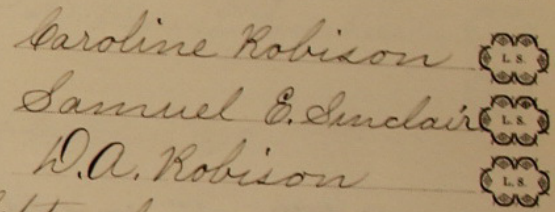 Caroline Robison L. S.
Samuel E. Sinclair L. S.
D. A. Robison L. S.